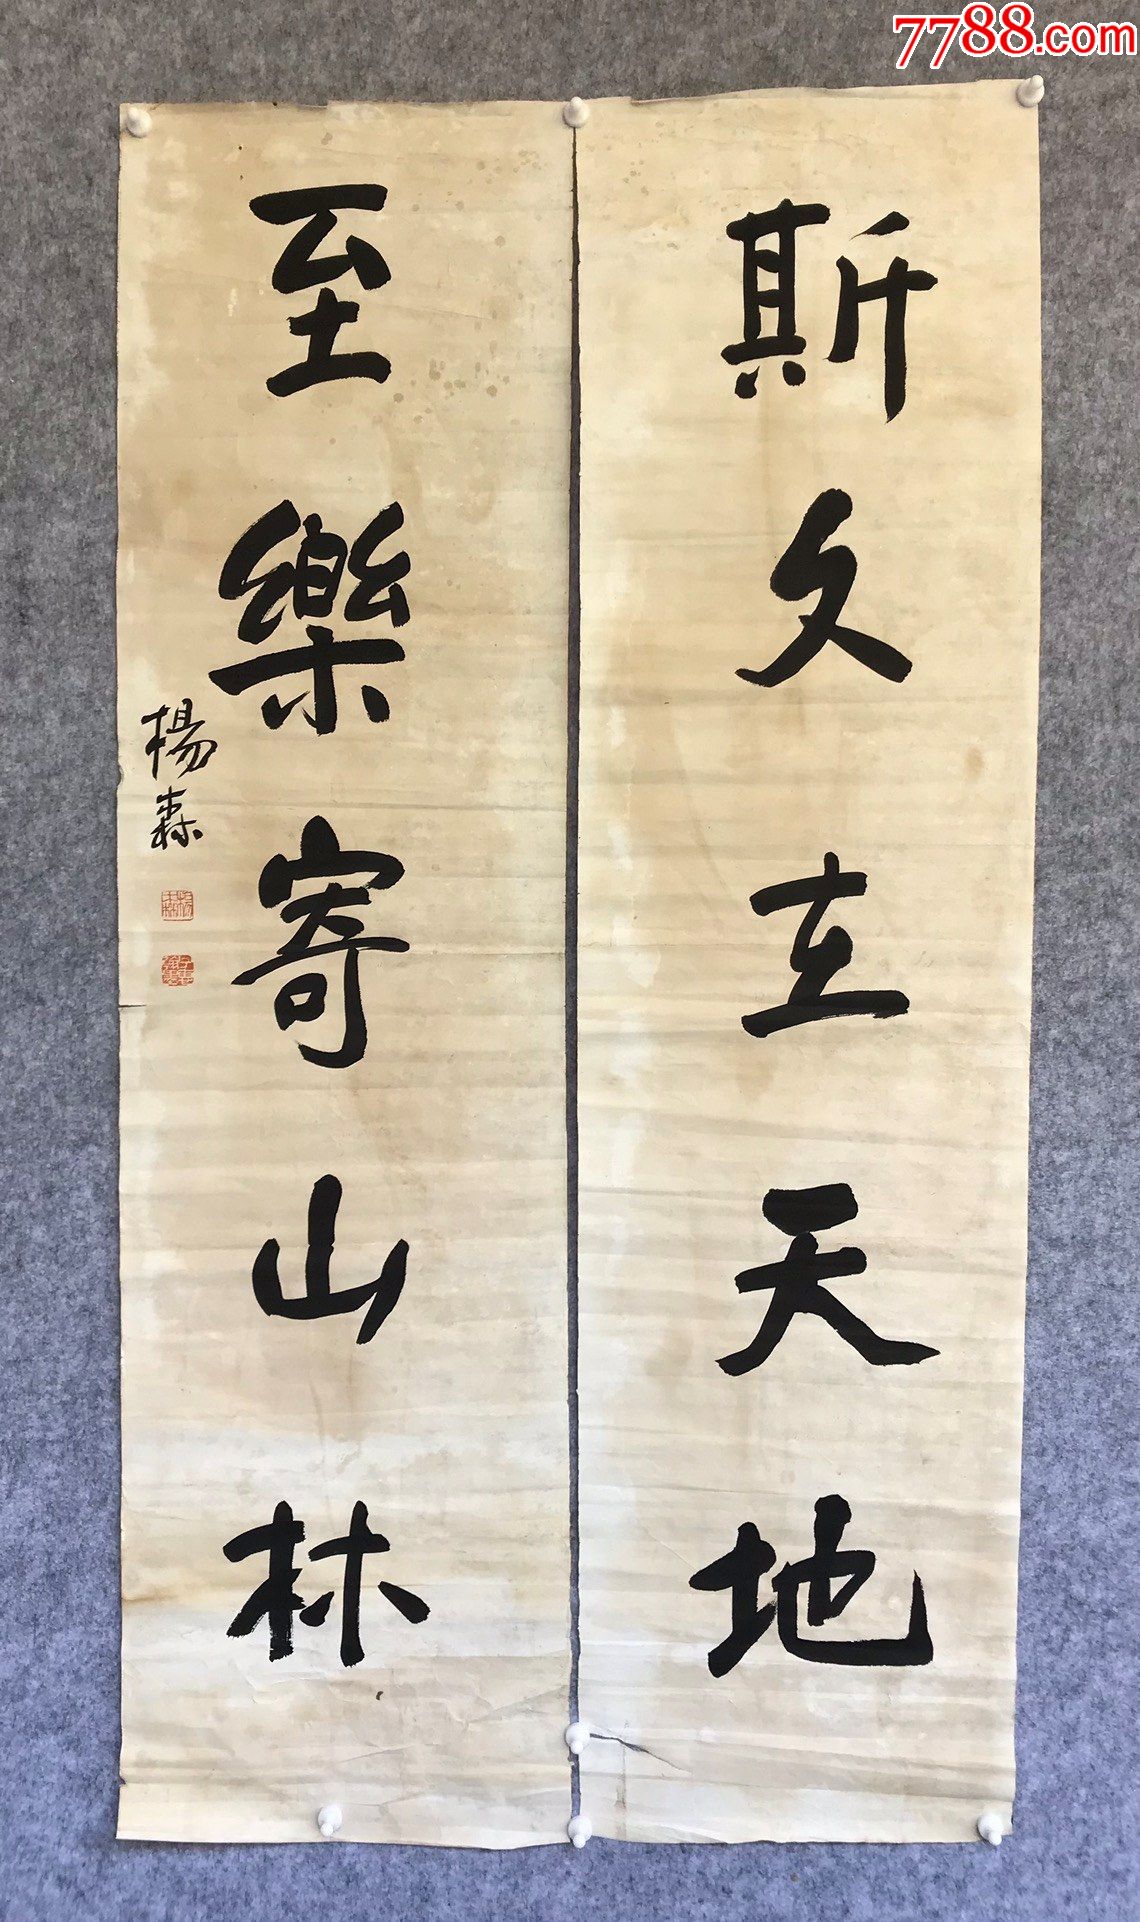 7788.com
斯文在天地
至樂寄山林
楊森
楊森